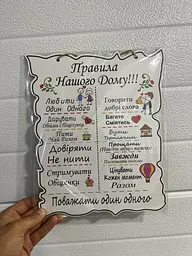 Правила
Нашого Дому!!!
Любити
Один Одного
Дарувати
Обійми і Поцілунки
Пити
Чай Разом
Довіряти
Не нити
Стримувати
Обіцянки
Говорити
добрі слова
Багато
Сміятись
Бути
Прощати
Завжди
Цінувати
Кожен момент
Разом
Поважати один одного